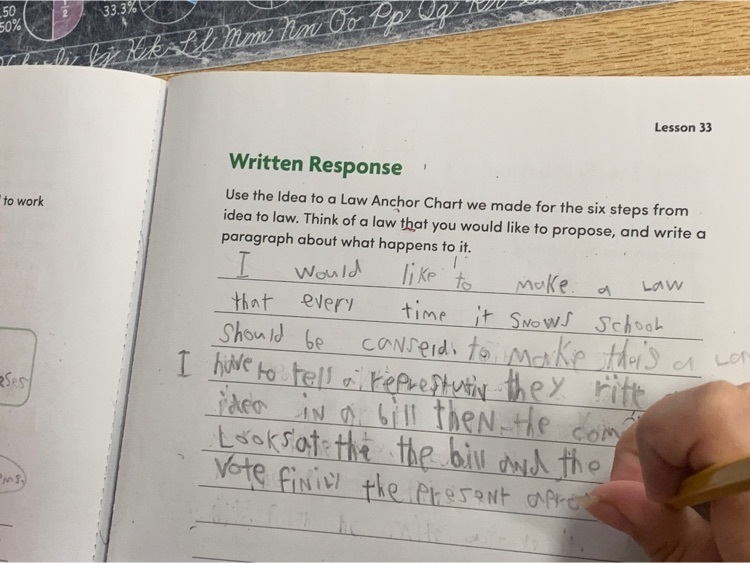 .50
50%
1/2
33.3%
Kk Ll Mm Nn Oo Pp Qq
Lesson 33
to work
Written Response
Use the Idea to a Law Anchor Chart we made for the six steps from
idea to law. Think of a law that you would like to propose, and write a
paragraph about what happens to it.
I would like to make a law
that every time it snows school
should be canserd. to make this a
I have to tell a represtutiv they rite
idea in a bill then the com
Looks at the the bill and the
vote finily the present apro